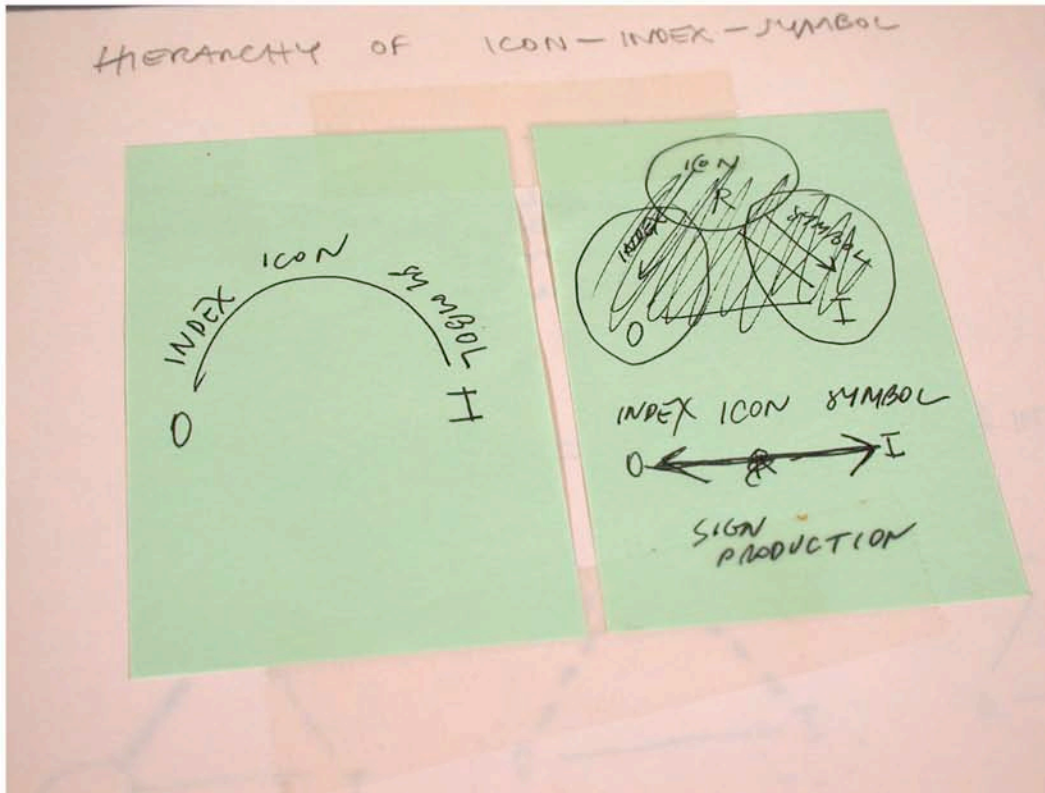 HIERARCHY OF ICON-INDEX-SYMBOL
INDEX ICON SYMBOL
O I
ICON
R
INDEX SYMBOL
O I
INDEX ICON SYMBOL
O R I
SIGN
PRODUCTION